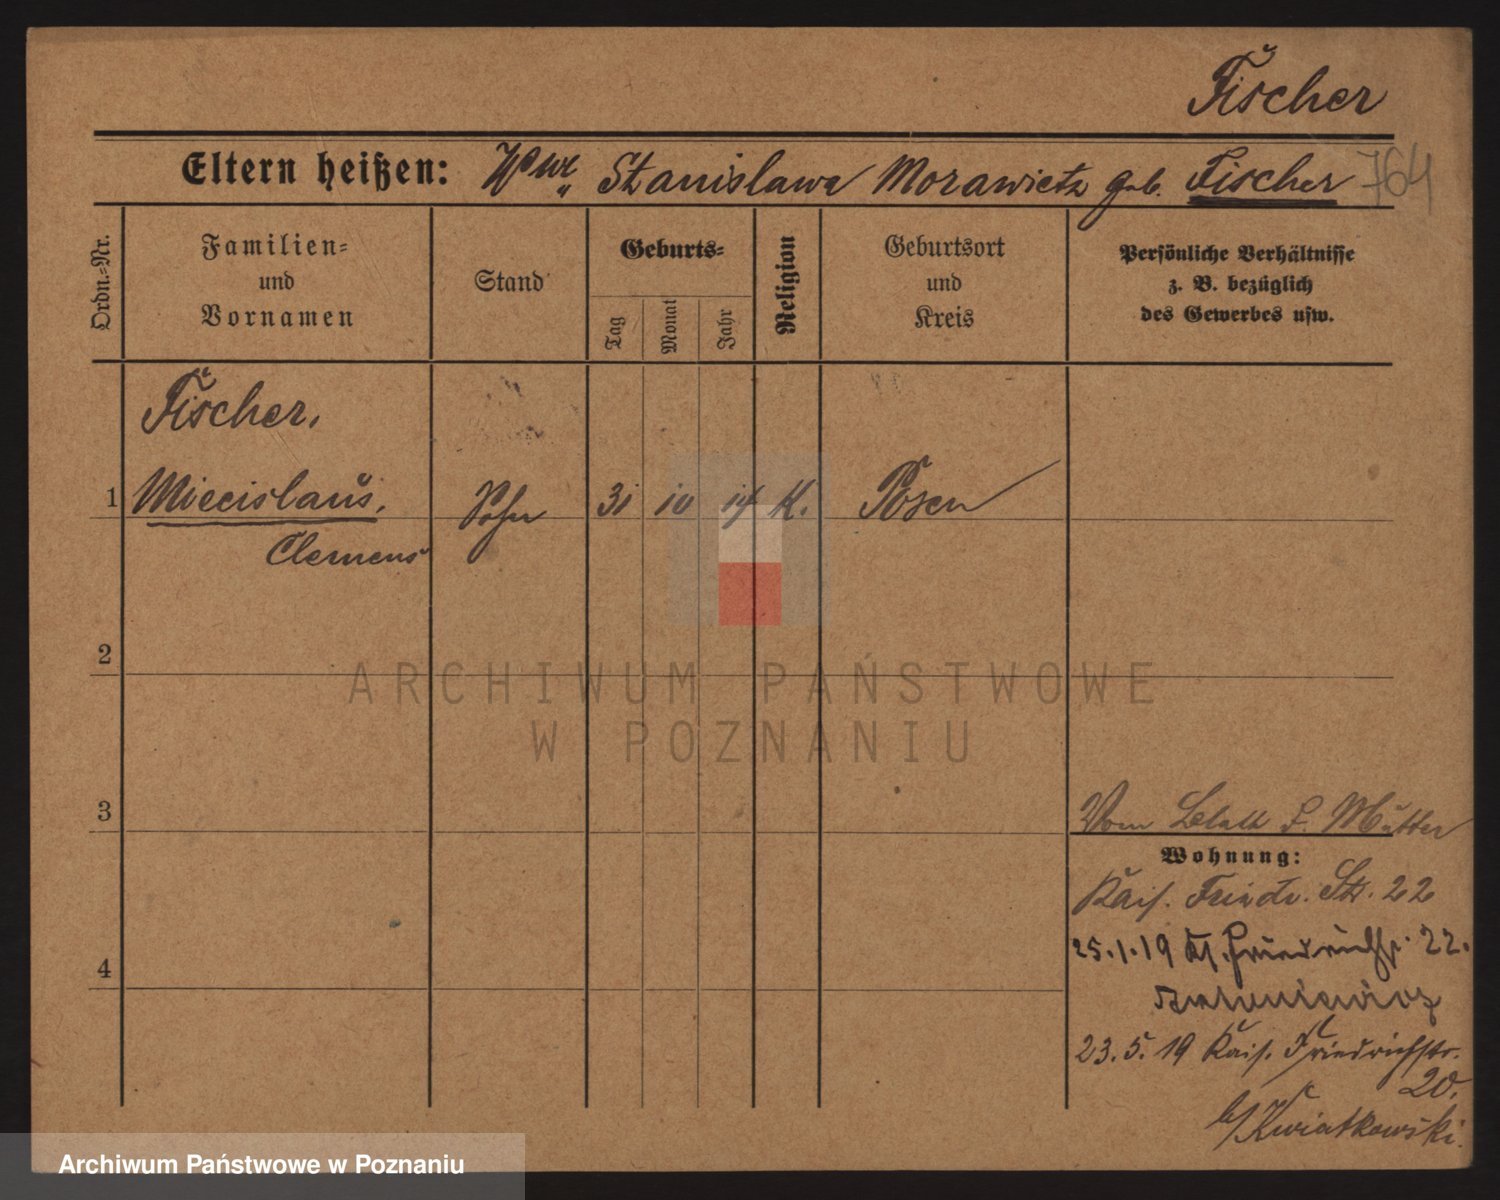 Fischer
Eltern heißen: Wwe Stanislawa Morawietz geb. Fischer 764
Ordn.=Nr.
Familien=
und
Vornamen
Stand
Geburts=
Tag
Monat
Jahr
Religion
Geburtsort
und
Kreis
Persönliche Verhältnisse
z. B. bezüglich
des Gewerbes usw.
Fischer,
1 Miecislaus, Sohn 31 10 14 K. Posen
Clemens
2
ARCHIWUM PAŃSTWOWE
W POZNANIU
3
Vom Blatt d. Mutter
Wohnung:
Kais. Friedr. Str. 22
25.1.19 Kf. Friedrichstr. 22.
4
23.5.19 Kais. Friedrichstr.
20.
b/Kwiatkowski.
Archiwum Państwowe w Poznaniu